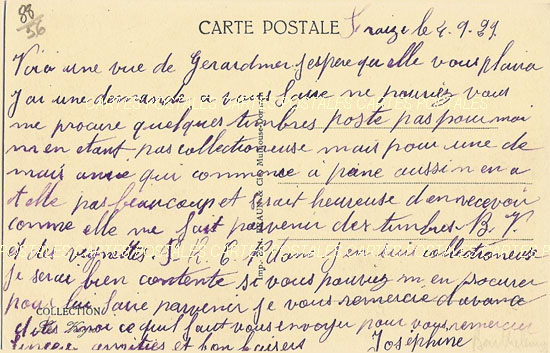 88
56
CARTE POSTALE
Fraize le 4.9.29
Voici une vue de Gerardmer j'espère qu'elle vous plaira
J'ai une demande a vous faire ne pouriez vous
me procurer quelques timbres poste pas pour moi
n'en etant pas collectioneuse mais pour une de
mais amie qui commence à peine aussi n'en a
t elle pas beaucoup et serait heureuse d'en recevoir
comme elle me fait parvenir des timbres B. T.
et des vignettes dont j'en suis collectioneuse
je serai bien contente si vous pouviez m'en procurer
pour lui faire parvenir je vous remercie d'avance
COLLECTION
dites moi ce qu'il faut vous envoyer pour vous remercier
amitiés et bon baisers Josephine
Imp. BRAUN & Cie, Mulhouse-Dornach